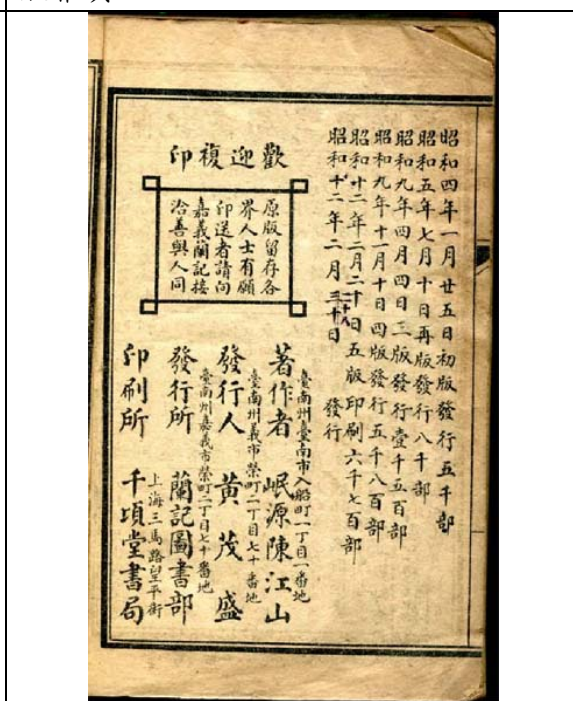 昭和四年一月廿五日初版發行五千部
昭和五年七月十日再版發行八千部
昭和九年四月四日三版發行壹千五百部
昭和九年十一月十日四版發行五千八百部
昭和十二年二月二十日五版印刷六千七百部
昭和十二年二月二十八日發行
歡迎複印
原版留存各
界人士有願
印送者請向
嘉義蘭記接
洽善與人同
臺南州臺南市入船町一丁目一番地
著作者 岷源陳江山
臺南州義市榮町二丁目七十番地
發行人 黃茂盛
臺南州嘉義市榮町二丁目七十番地
發行所 蘭記圖書部
上海三馬路望平街
印刷所 千頃堂書局